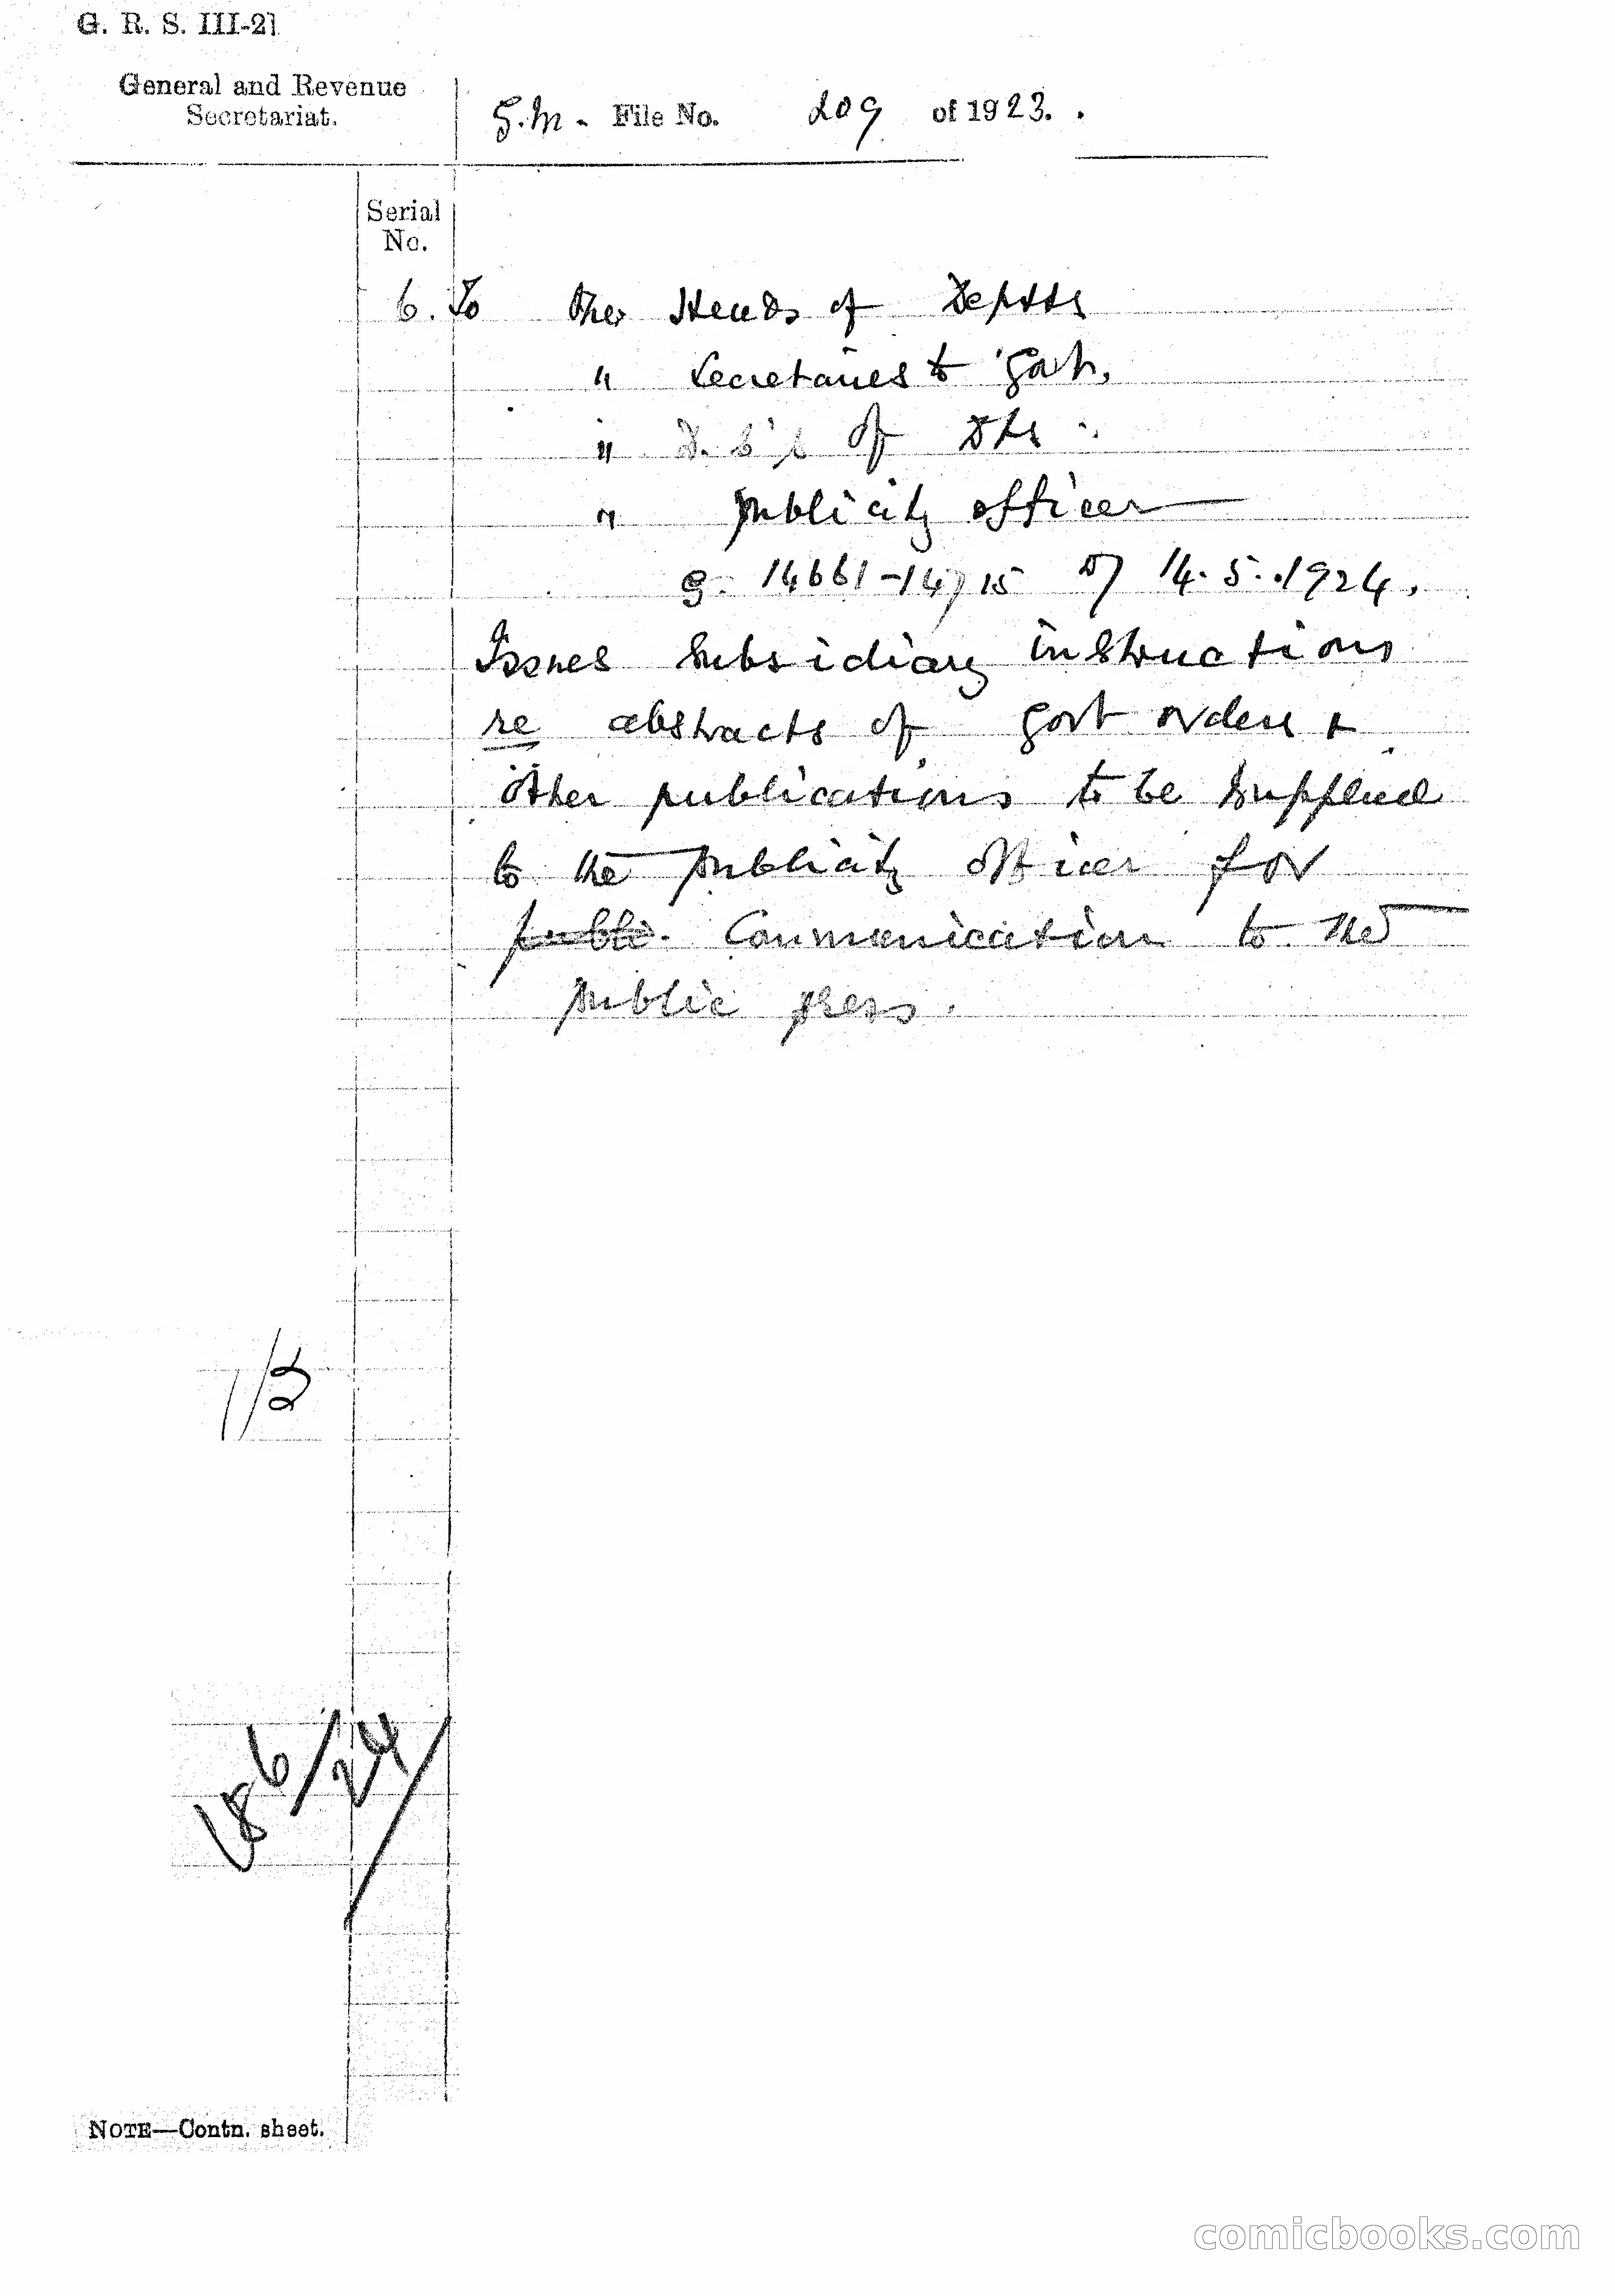 G. R. S. III-21
General and Revenue
Secretariat.
G.M. File No. 209 of 1923.
Serial
No.
6. To The Heads of Deptts
" Secretaries to Govt,
" D.C's of Dts
" publicity officer
G. 14661-14715 of 14.5.1924.
Issues subsidiary instructions
re abstracts of Govt orders +
other publications to be supplied
to the publicity officer for
publi. Communication to the
public press.
13
18 6/24
NOTE—Contn. sheet.
comicbooks.com